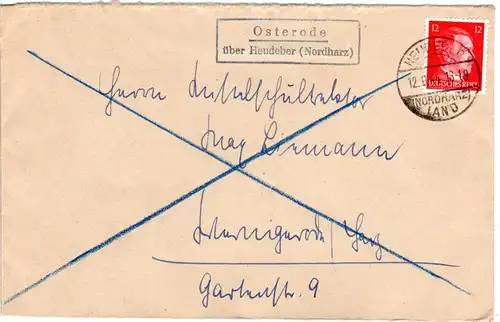 Osterode
über Heudeber (Nordharz)
12 12
DEUTSCHES REICH
HEUDEBER
12.
(NORDHARZ)
LAND
Herrn Mittelschulrektor
Max Liemann
Wernigerode/Harz
Gartenstr. 9